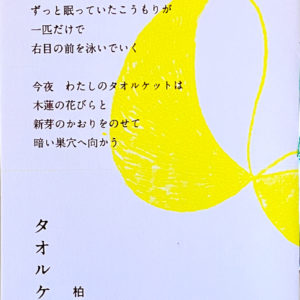 ずっと眠っていたこうもりが
一匹だけで
右目の前を泳いでいく
今夜　わたしのタオルケットは
木蓮の花びらと
新芽のかおりをのせて
暗い巣穴へ向かう
タオルケ
柏